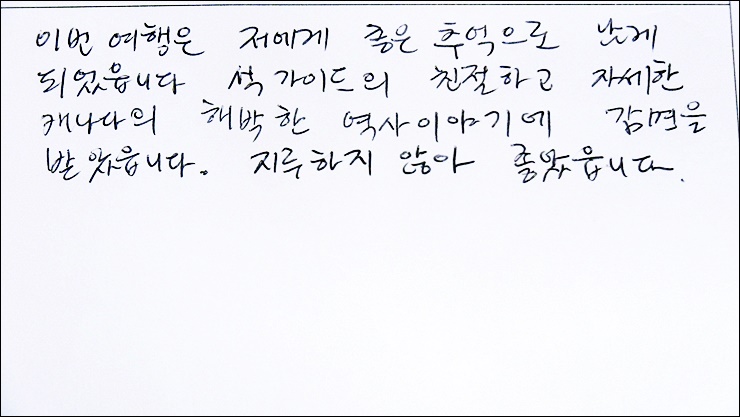 이번 여행은 저에게 좋은 추억으로 남게
되었읍니다 석가이드의 친절하고 자세한
캐나다의 해박한 역사이야기에 감명을
받았읍니다. 지루하지 않아 좋았읍니다.